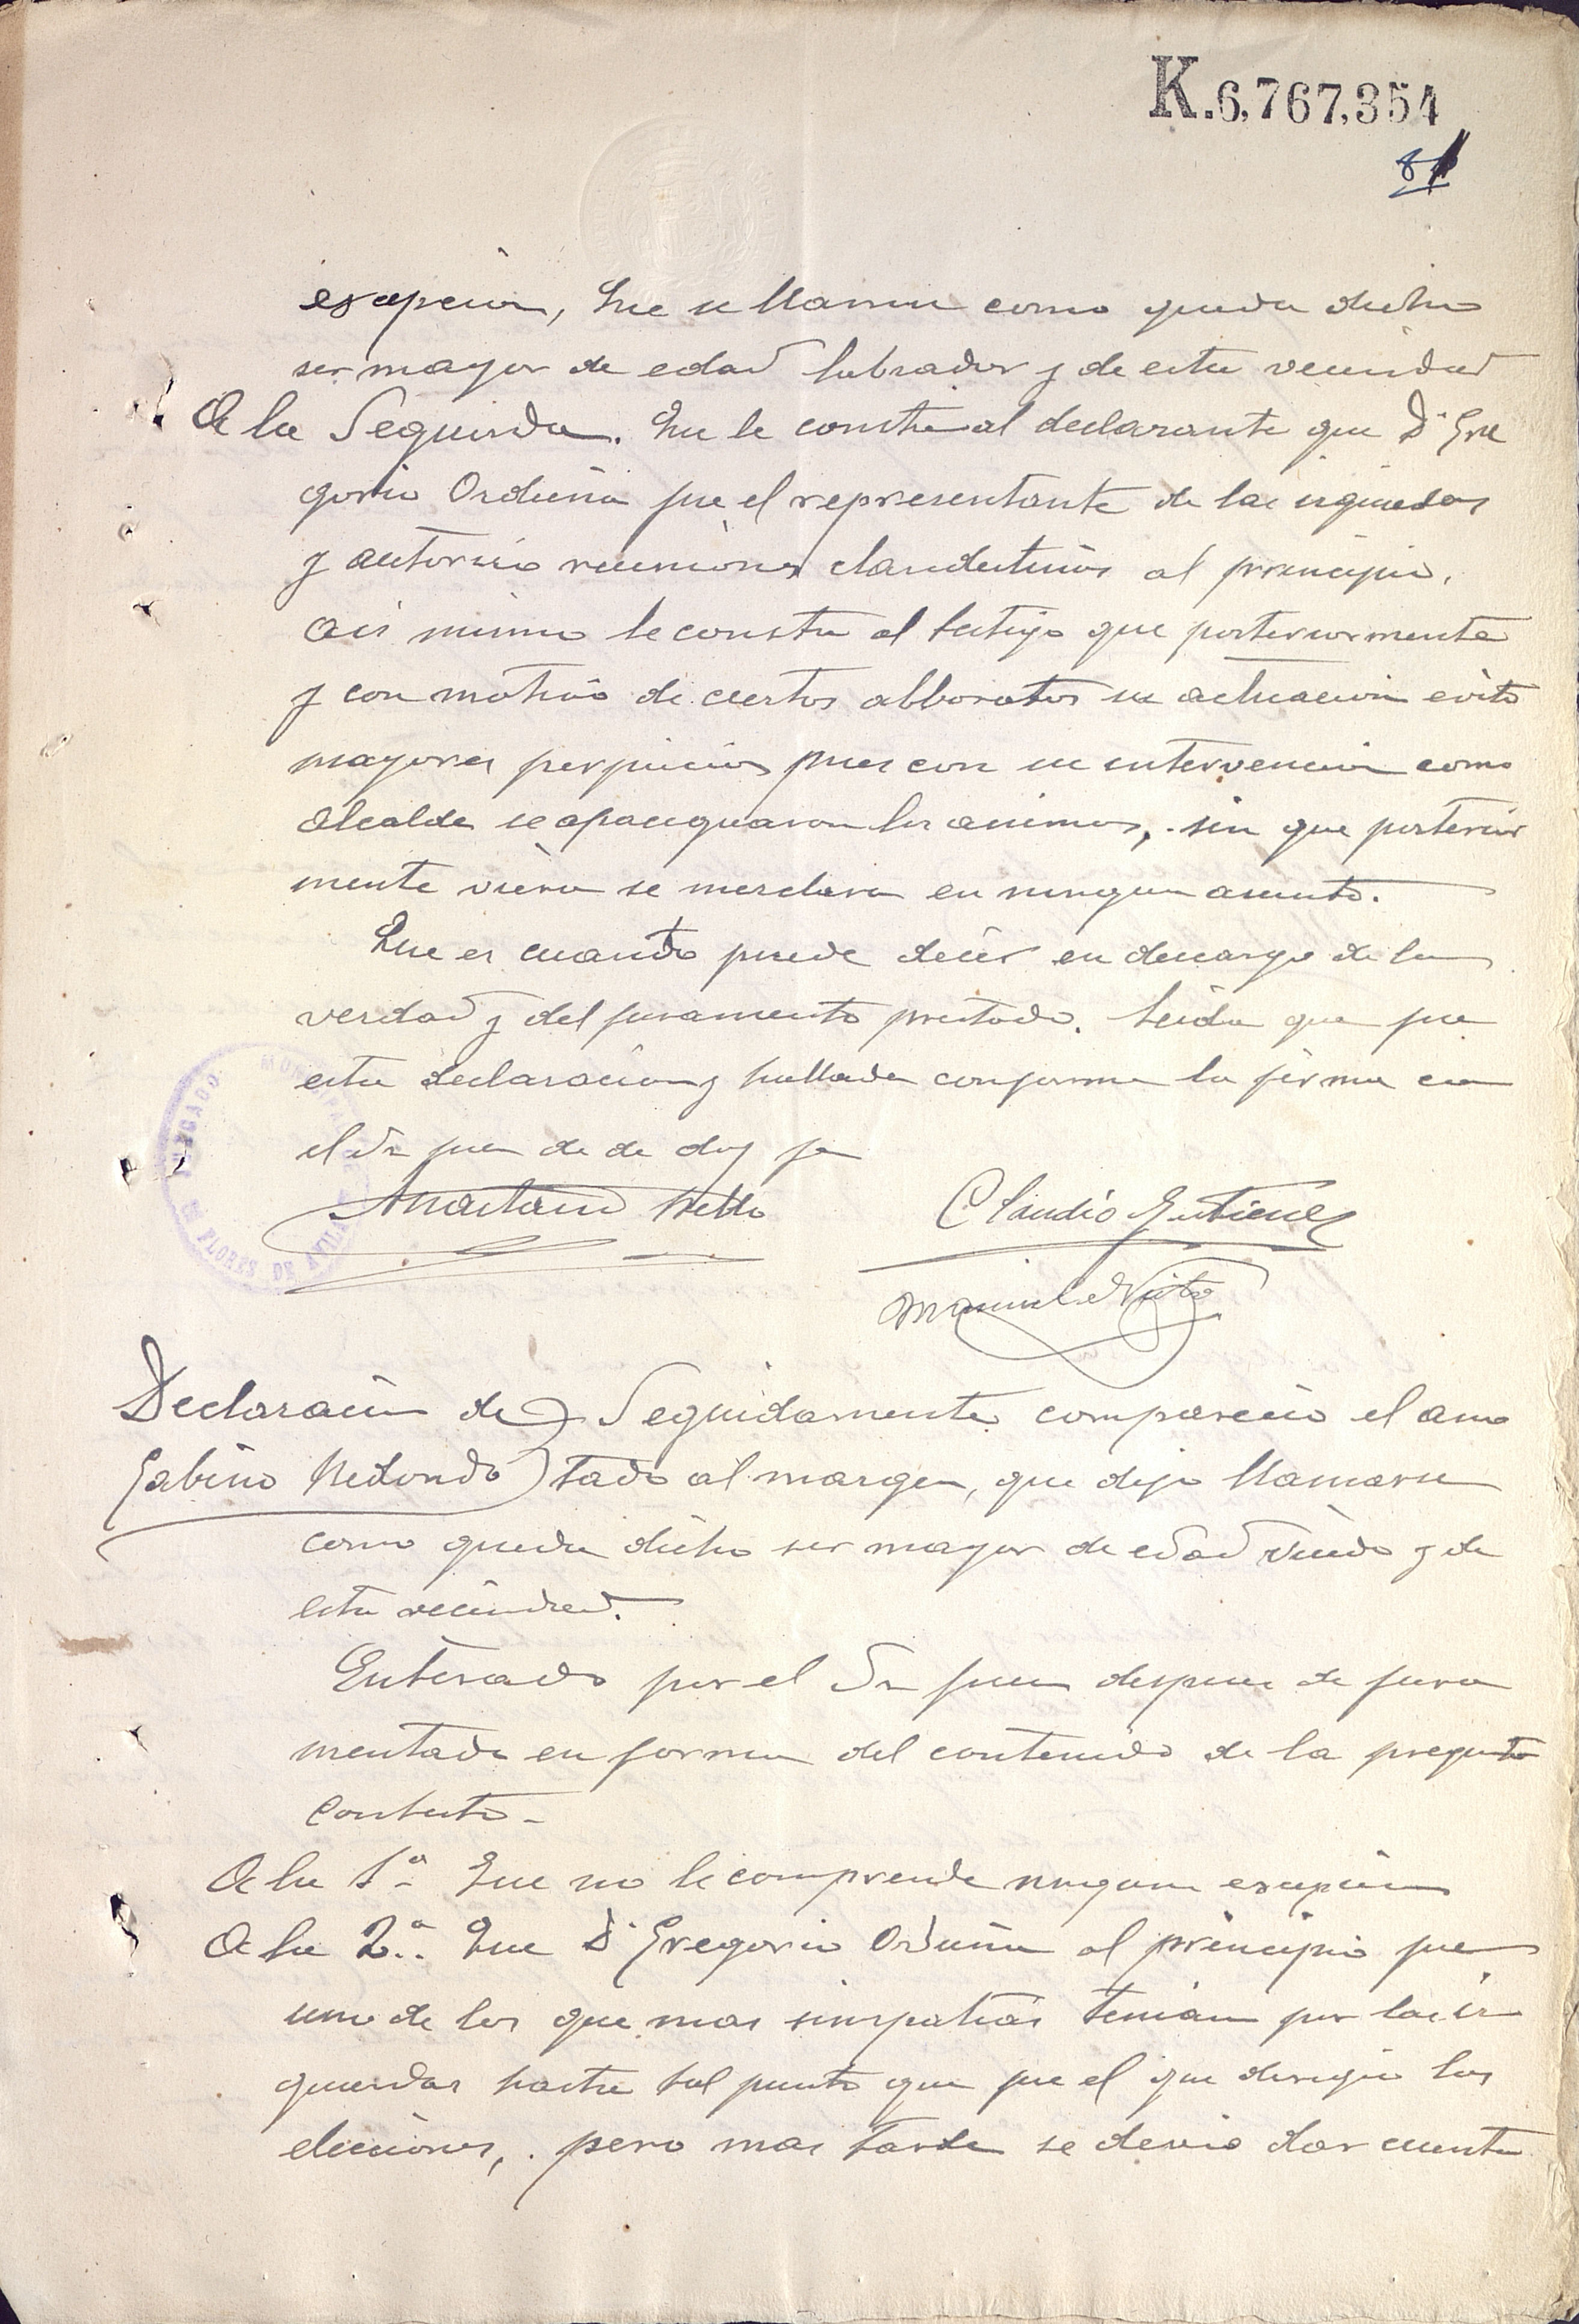 K.6,767,354
81
esepcion, Que se llama como queda dicho
ser mayor de edad labrador y de esta vecindad
A la Segunda. Que le consta al declarante que Dn Gre
gorio Orduña fue el representante de las izquierdas
y autorizo reuniones clandestinas al principio,
asi mismo le consta al testigo que posteriormente
y con motivo de ciertos alborotos su actuacion evito
mayores perjuicios pues con su intervencion como
Alcalde se apaciguaron los animos, sin que posterior
mente viera se mezclara en ningun asunto.
Que es cuanto puede decir en descargo de la
verdad y del juramento prestado. Leida que fue
esta declaracion y hallada conforme la firma con
el Sr juez de de doy fe
Claudio Gutierrez
Manuel Nieto
JUZGADO MUNICIPAL DE FLORES DE AVILA
Declaracion de Seguidamente comparecio el ano
Gabino Redondo tado al margen, que dijo llamarse
como queda dicho ser mayor de edad viudo y de
esta vecindad.
Enterado por el Sr juez despues de jura
mentado en forma del contenido de la pregunta
contesto-
A la 1ª Que no le comprende ninguna esepcion
A la 2ª. Que Dn Gregorio Orduña al principio fue
uno de los que mas simpatias tenian por las iz
quierdas hasta tal punto que fue el que dirigio las
elecciones, pero mas tarde se devio dar cuenta